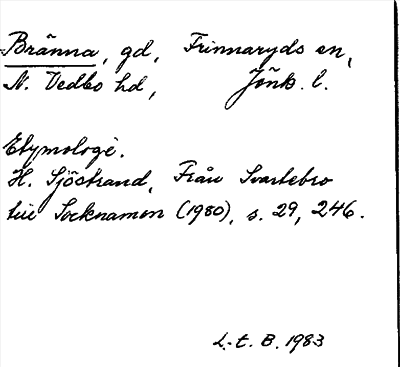 Bränna, gd, Frinnaryds sn,
N. Vedbo hd, Jönk. l.
Etymologi.
H. Sjöstrand, Från Svartebro
till Socknamen (1980), s. 29, 246.
L-t. B. 1983